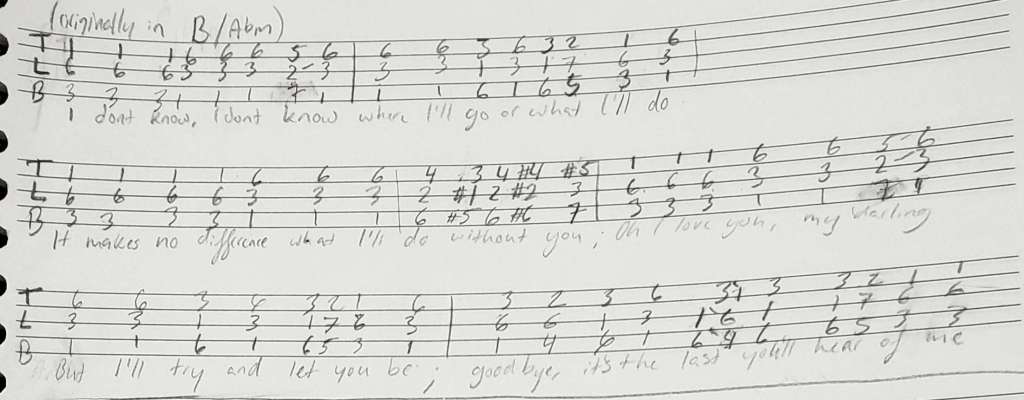 (originally in B/Abm)
T 1 1 1 6 6 6 5 6 6 6 3 6 3 2 1 6
L 6 6 6 3 3 3 2-3 3 3 1 3 1 7 6 3
B 3 3 3 1 1 1 7 1 1 1 6 1 6 5 3 1
I dont know, I dont know where I'll go or what I'll do
T 1 1 1 1 6 6 6 4 3 4 #4 #5 1 1 1 6 6 5-6
L 6 6 6 6 3 3 3 2 #1 2 #2 3 6 6 6 3 3 2-3
B 3 3 3 3 1 1 1 6 #5 6 #6 7 3 3 3 1 1 7 1
It makes no difference what I'll do without you; Oh I love you, my darling
T 6 6 3 6 3 2 1 6 3 2 3 6 3 3 3 2 1 1
L 3 3 1 3 1 7 6 3 6 6 1 3 1 6 1 1 7 6 6
B 1 1 6 1 6 5 3 1 1 4 6 1 6 4 6 6 5 3 3
But I'll try and let you be; goodbye, it's the last you'll hear of me